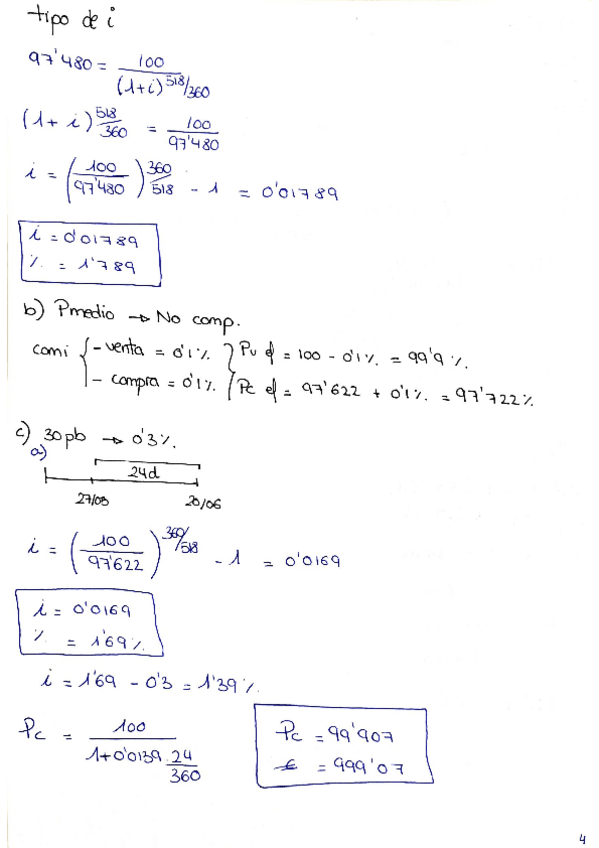 tipo de i
97'480 = 100 / (1+i)^518/360
(1+i)^518/360 = 100 / 97'480
i = (100 / 97'480)^360/518 - 1 = 0'01789
i = 0'01789
% = 1'789
b) Pmedio → No comp.
comi { - venta = 0'1% } Pv ef = 100 - 0'1% = 99'9%.
- compra = 0'1% } Pc ef = 97'622 + 0'1% = 97'722%
c) 30pb → 0'3%.
a)
24d
27/05 20/06
i = (100 / 97'622)^360/518 - 1 = 0'0169
i = 0'0169
% = 1'69%.
i = 1'69 - 0'3 = 1'39%.
Pc = 100 / 1+0'0139·24/360
Pc = 99'907
€ = 999'07
4